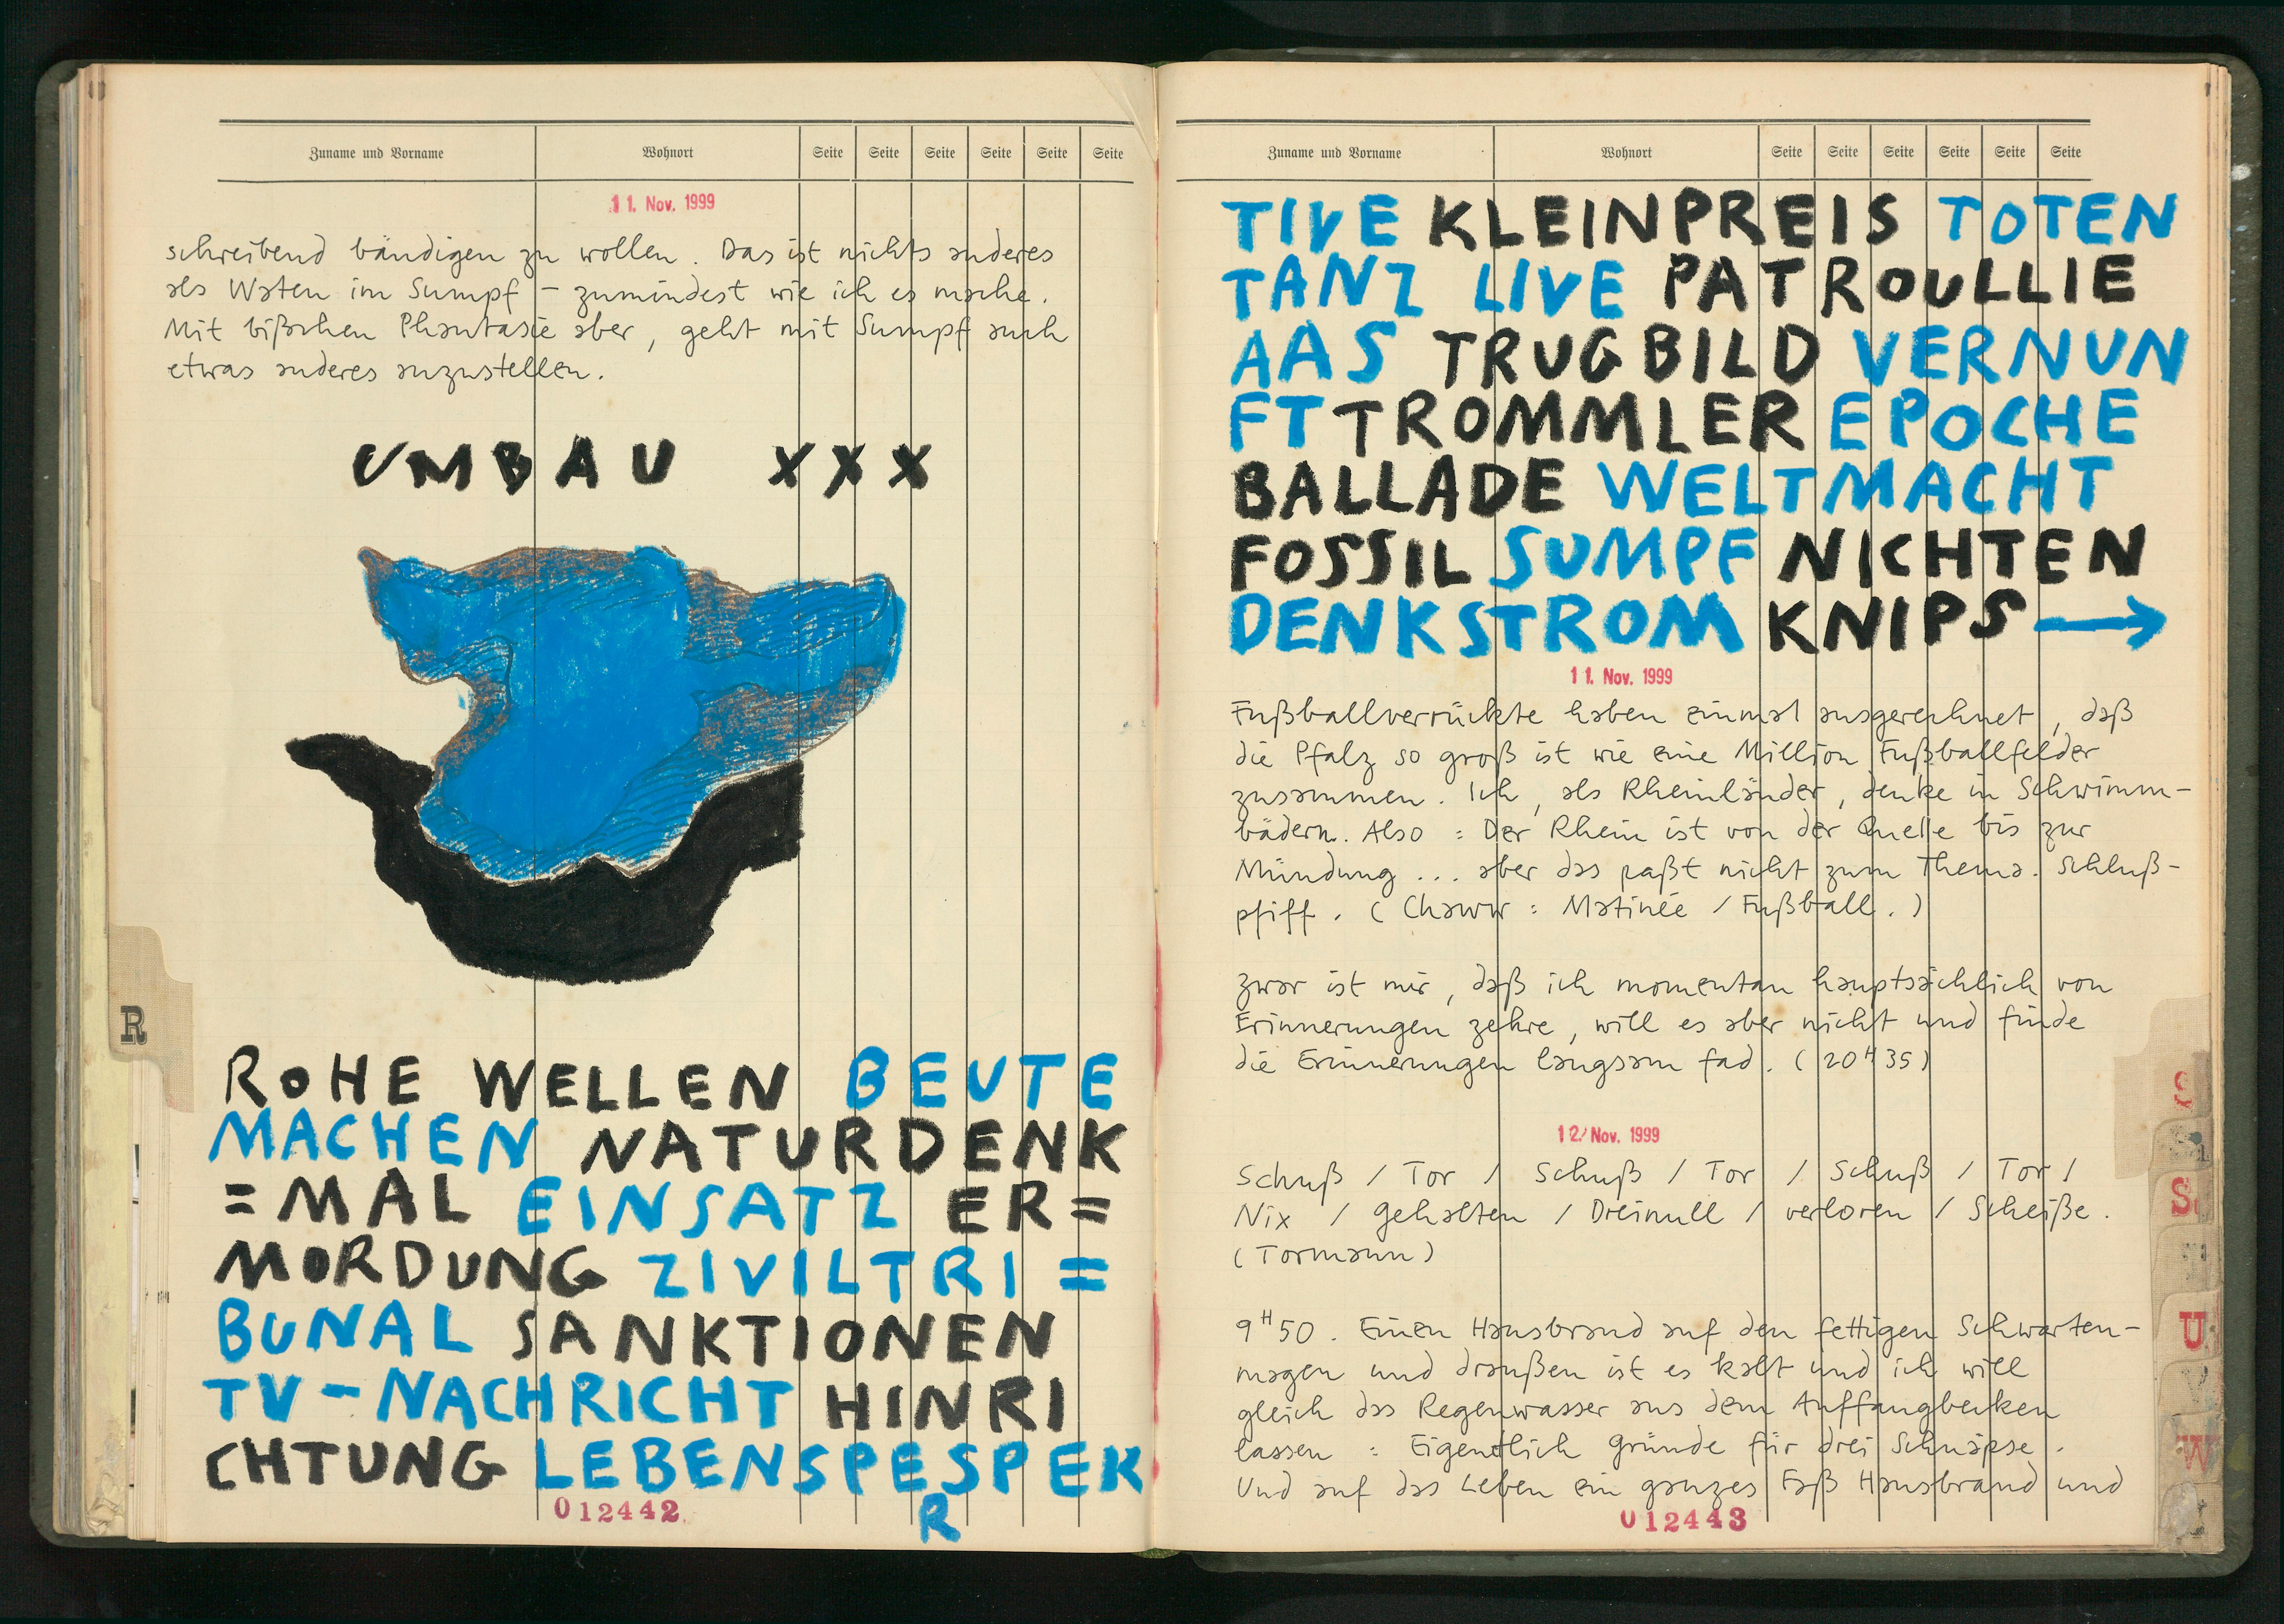 Zuname und Vorname Wohnort Seite Seite Seite Seite Seite Seite
11. Nov. 1999
schreibend bändigen zu wollen. Das ist nichts anderes
als Waten im Sumpf – zumindest wie ich es mache.
Mit bißchen Phantasie aber, geht mit Sumpf auch
etwas anderes anzustellen.
UMBAU XXX
R
ROHE WELLEN BEUTE
MACHEN NATURDENK
=MAL EINSATZ ER=
MORDUNG ZIVILTRI=
BUNAL SANKTIONEN
TV-NACHRICHT HINRI
CHTUNG LEBENSPESPEK
R
012442
Zuname und Vorname Wohnort Seite Seite Seite Seite Seite Seite
TIVE KLEINPREIS TOTEN
TANZ LIVE PATROULLIE
AAS TRUGBILD VERNUN
FT TROMMLER EPOCHE
BALLADE WELTMACHT
FOSSIL SUMPF NICHTEN
DENKSTROM KNIPS →
11. Nov. 1999
Fußballverrückte haben einmal ausgerechnet, daß
die Pfalz so groß ist wie eine Million Fußballfelder
zusammen. Ich, als Rheinländer, denke in Schwimm-
bädern. Also : Der Rhein ist von der Quelle bis zur
Mündung ... aber das paßt nicht zum Thema. Schluß-
pfiff. ( Chaww : Matinée / Fußball. )
Zwar ist mir, daß ich momentan hauptsächlich von
Erinnerungen zehre, will es aber nicht und finde
die Erinnerungen langsam fad. ( 20H35 )
12. Nov. 1999
Schuß / Tor / Schuß / Tor / Schuß / Tor /
Nix / gehalten / Dreinull / verloren / Scheiße.
( Tormann )
9H50. Einen Hausbrand auf den fettigen Schwarten-
magen und draußen ist es kalt und ich will
gleich das Regenwasser aus dem Auffangbecken
lassen : Eigentlich Gründe für drei Schnäpse.
Und auf das Leben ein ganzes Faß Hausbrand und
012443
S
U
V
W